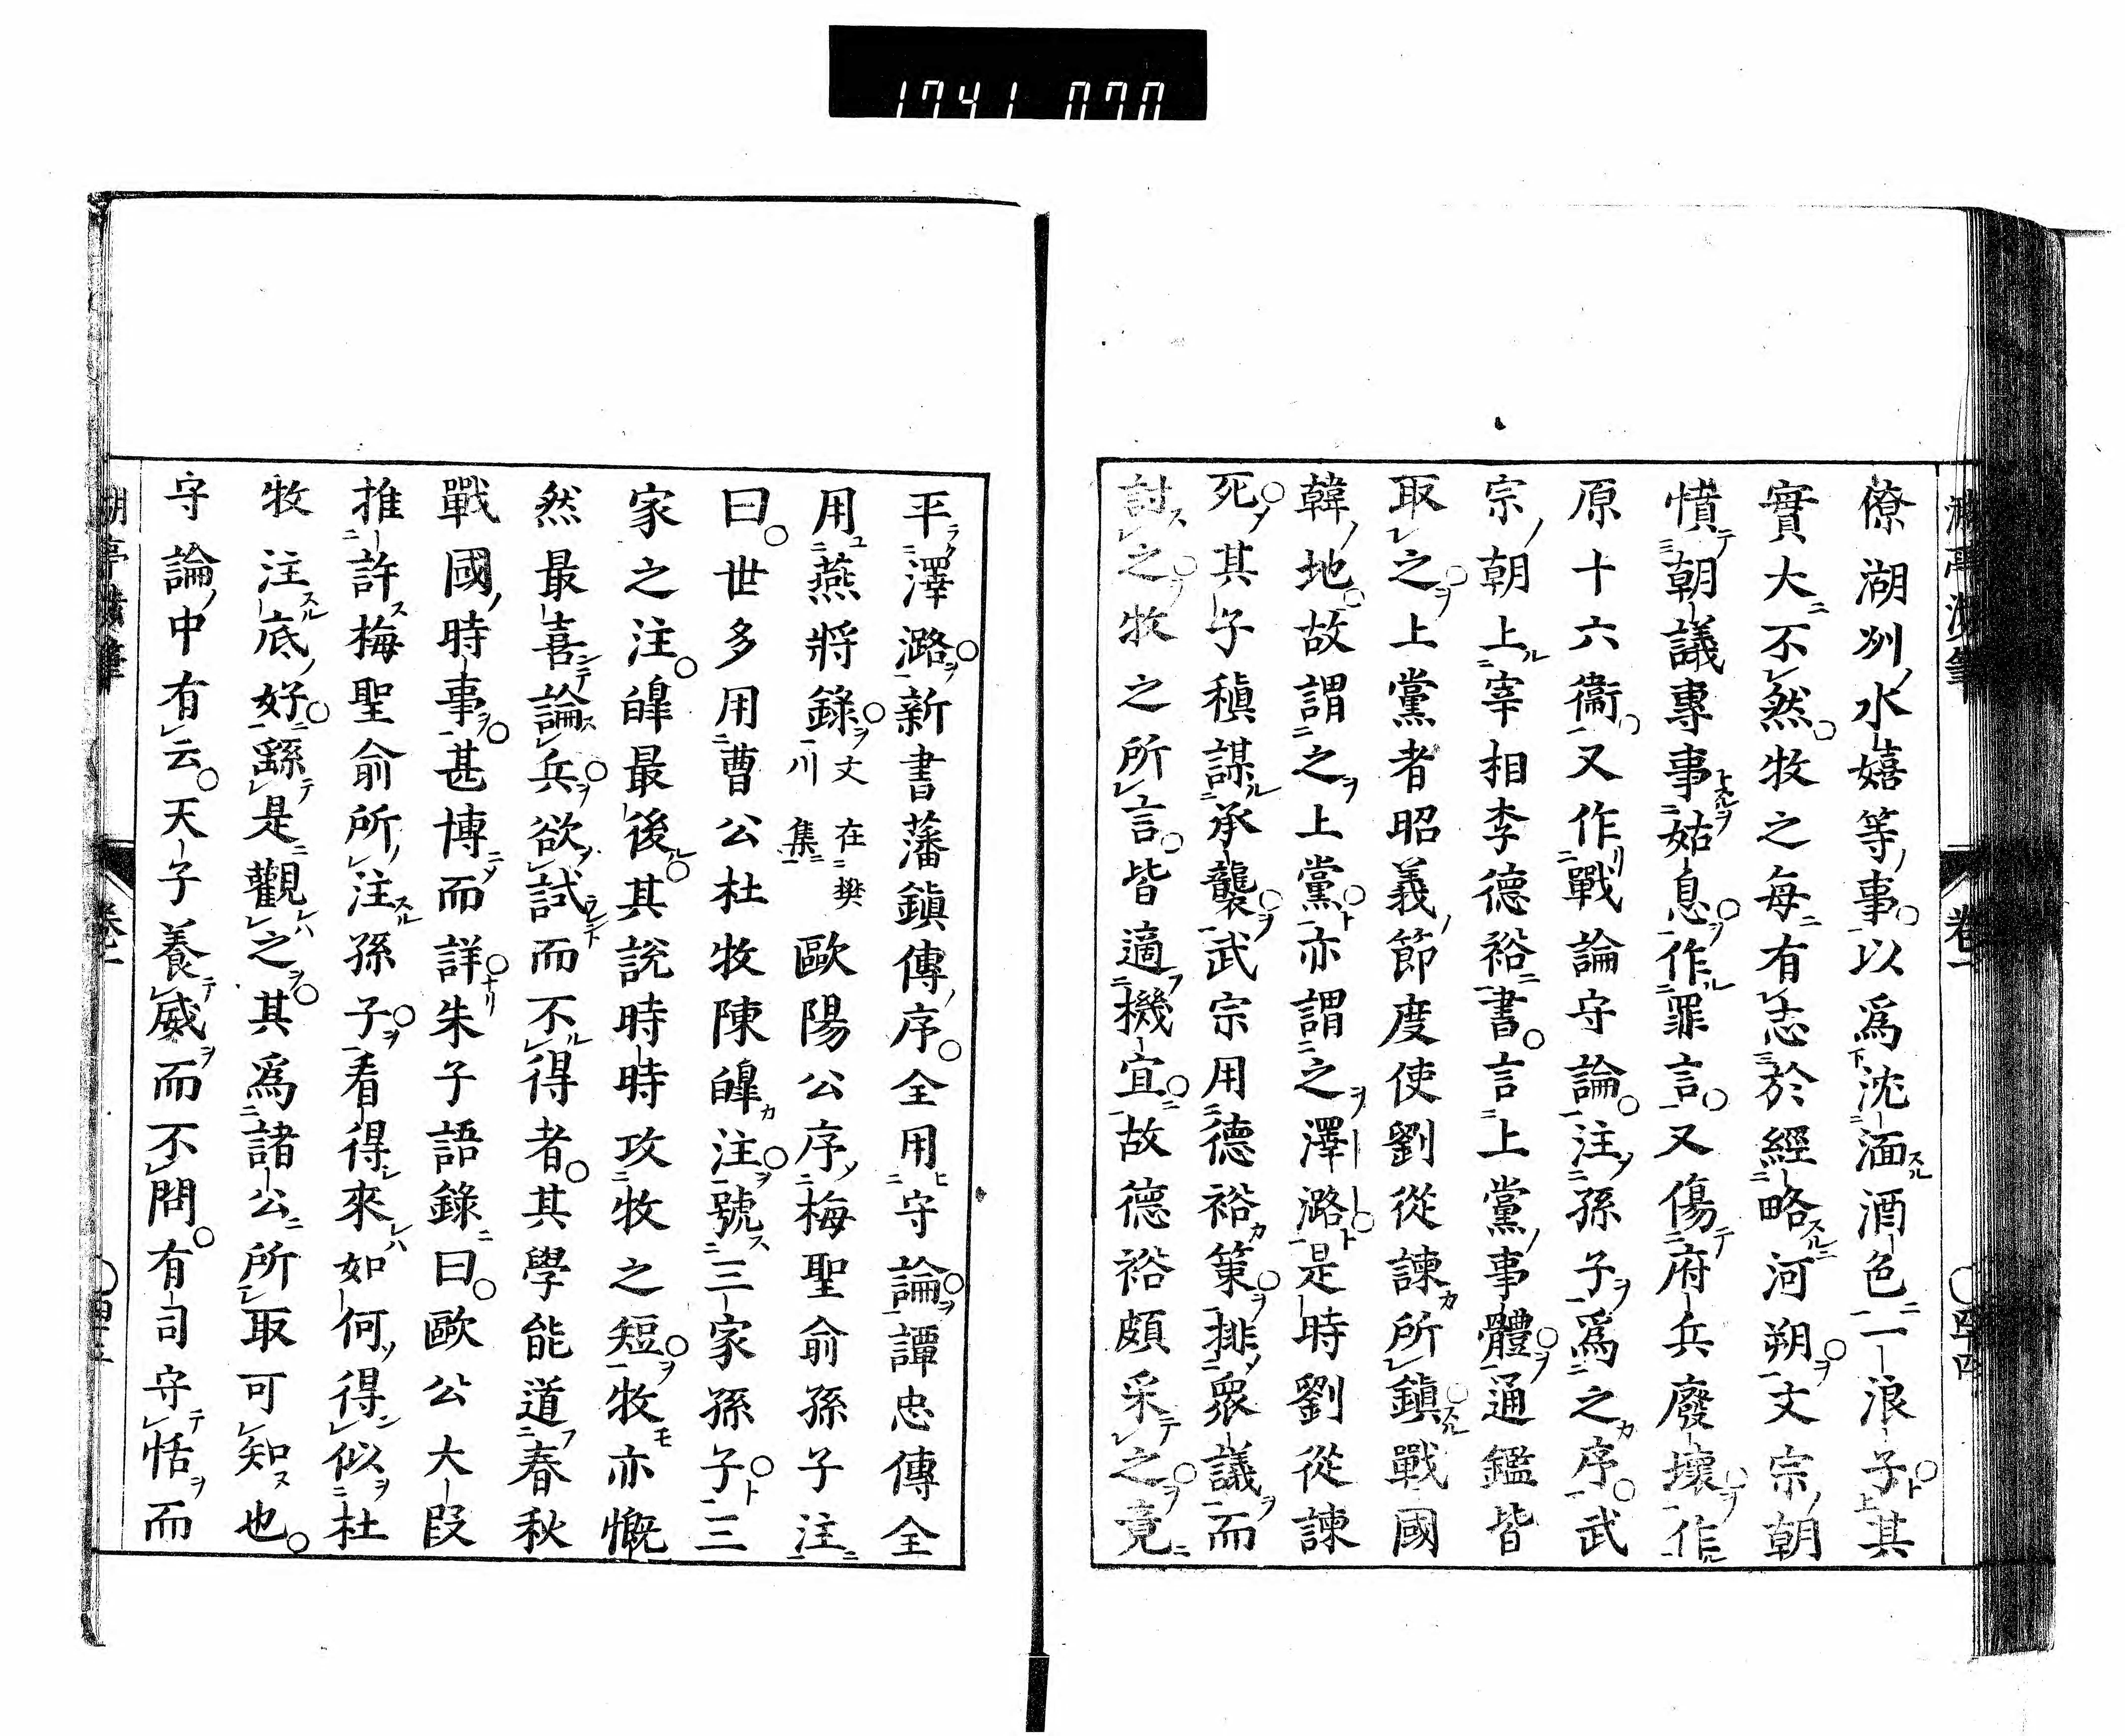 1741 070
僚湖州水嬉等事以爲沈湎酒色一浪子其
實大不然牧之每有志於經略河朔文宗朝
憤朝議專事姑息作罪言又傷府兵廢壞作
原十六衞又作戰論守論注孫子爲之序武
宗朝上宰相李德裕書言上黨事體通鑑皆
取之上黨者昭義節度使劉從諫所鎭戰國
韓地故謂之上黨亦謂之澤潞是時劉從諫
死其子稹謀承襲武宗用德裕策排衆議而
討之牧之所言皆適機宜故德裕頗采之竟
平澤潞新書藩鎭傳序全用守論譚忠傳全
用燕將錄文在樊川集歐陽公序梅聖俞孫子注
曰世多用曹公杜牧陳皞注號三家孫子三
家之注皞最後其說時時攻牧之短牧亦慨
然最喜論兵欲試而不得者其學能道春秋
戰國時事甚博而詳朱子語錄曰歐公大段
推許梅聖俞所注孫子看得來如何得似杜
牧注底好繇是觀之其爲諸公所取可知也
守論中有云天子養威而不問有司守恬而